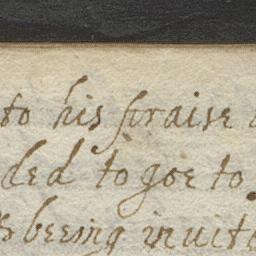 to his praise
ded to goe to
beeing invite